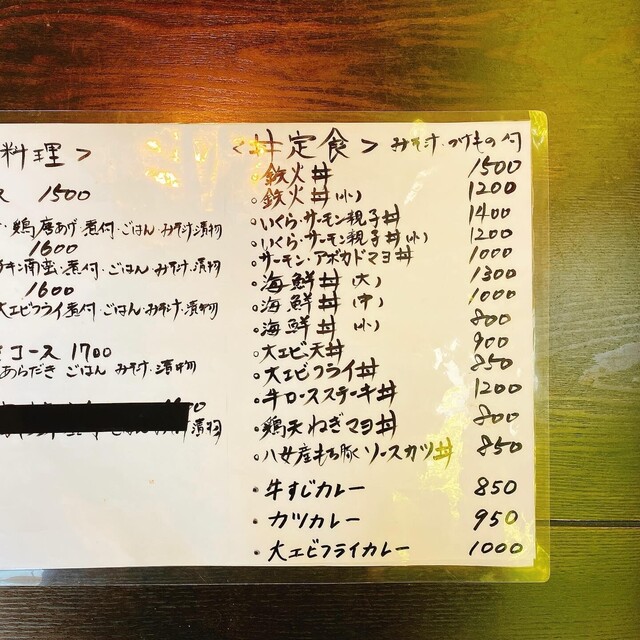 料理>
ス 1500
鶏唐あげ・煮付・ごはん・みそ汁・漬物
1600
チキン南蛮・煮付・ごはん・みそ汁・漬物
1600
大エビフライ・煮付・ごはん・みそ汁・漬物
コース 1700
あらだき ごはん みそ汁・漬物
漬物
<丼定食> みそ汁・つけもの付
・鉄火丼 1500
・鉄火丼(小) 1200
・いくら・サーモン親子丼 1400
・いくら・サーモン親子丼(小) 1200
・サーモン・アボカドマヨ丼 1000
・海鮮丼(大) 1300
・海鮮丼(中) 1000
・海鮮丼(小) 800
・大エビ天丼 900
・大エビフライ丼 850
・牛ロースステーキ丼 1200
・鶏天ねぎマヨ丼 800
・八女産もち豚ソースカツ丼 850
・牛すじカレー 850
・カツカレー 950
・大エビフライカレー 1000